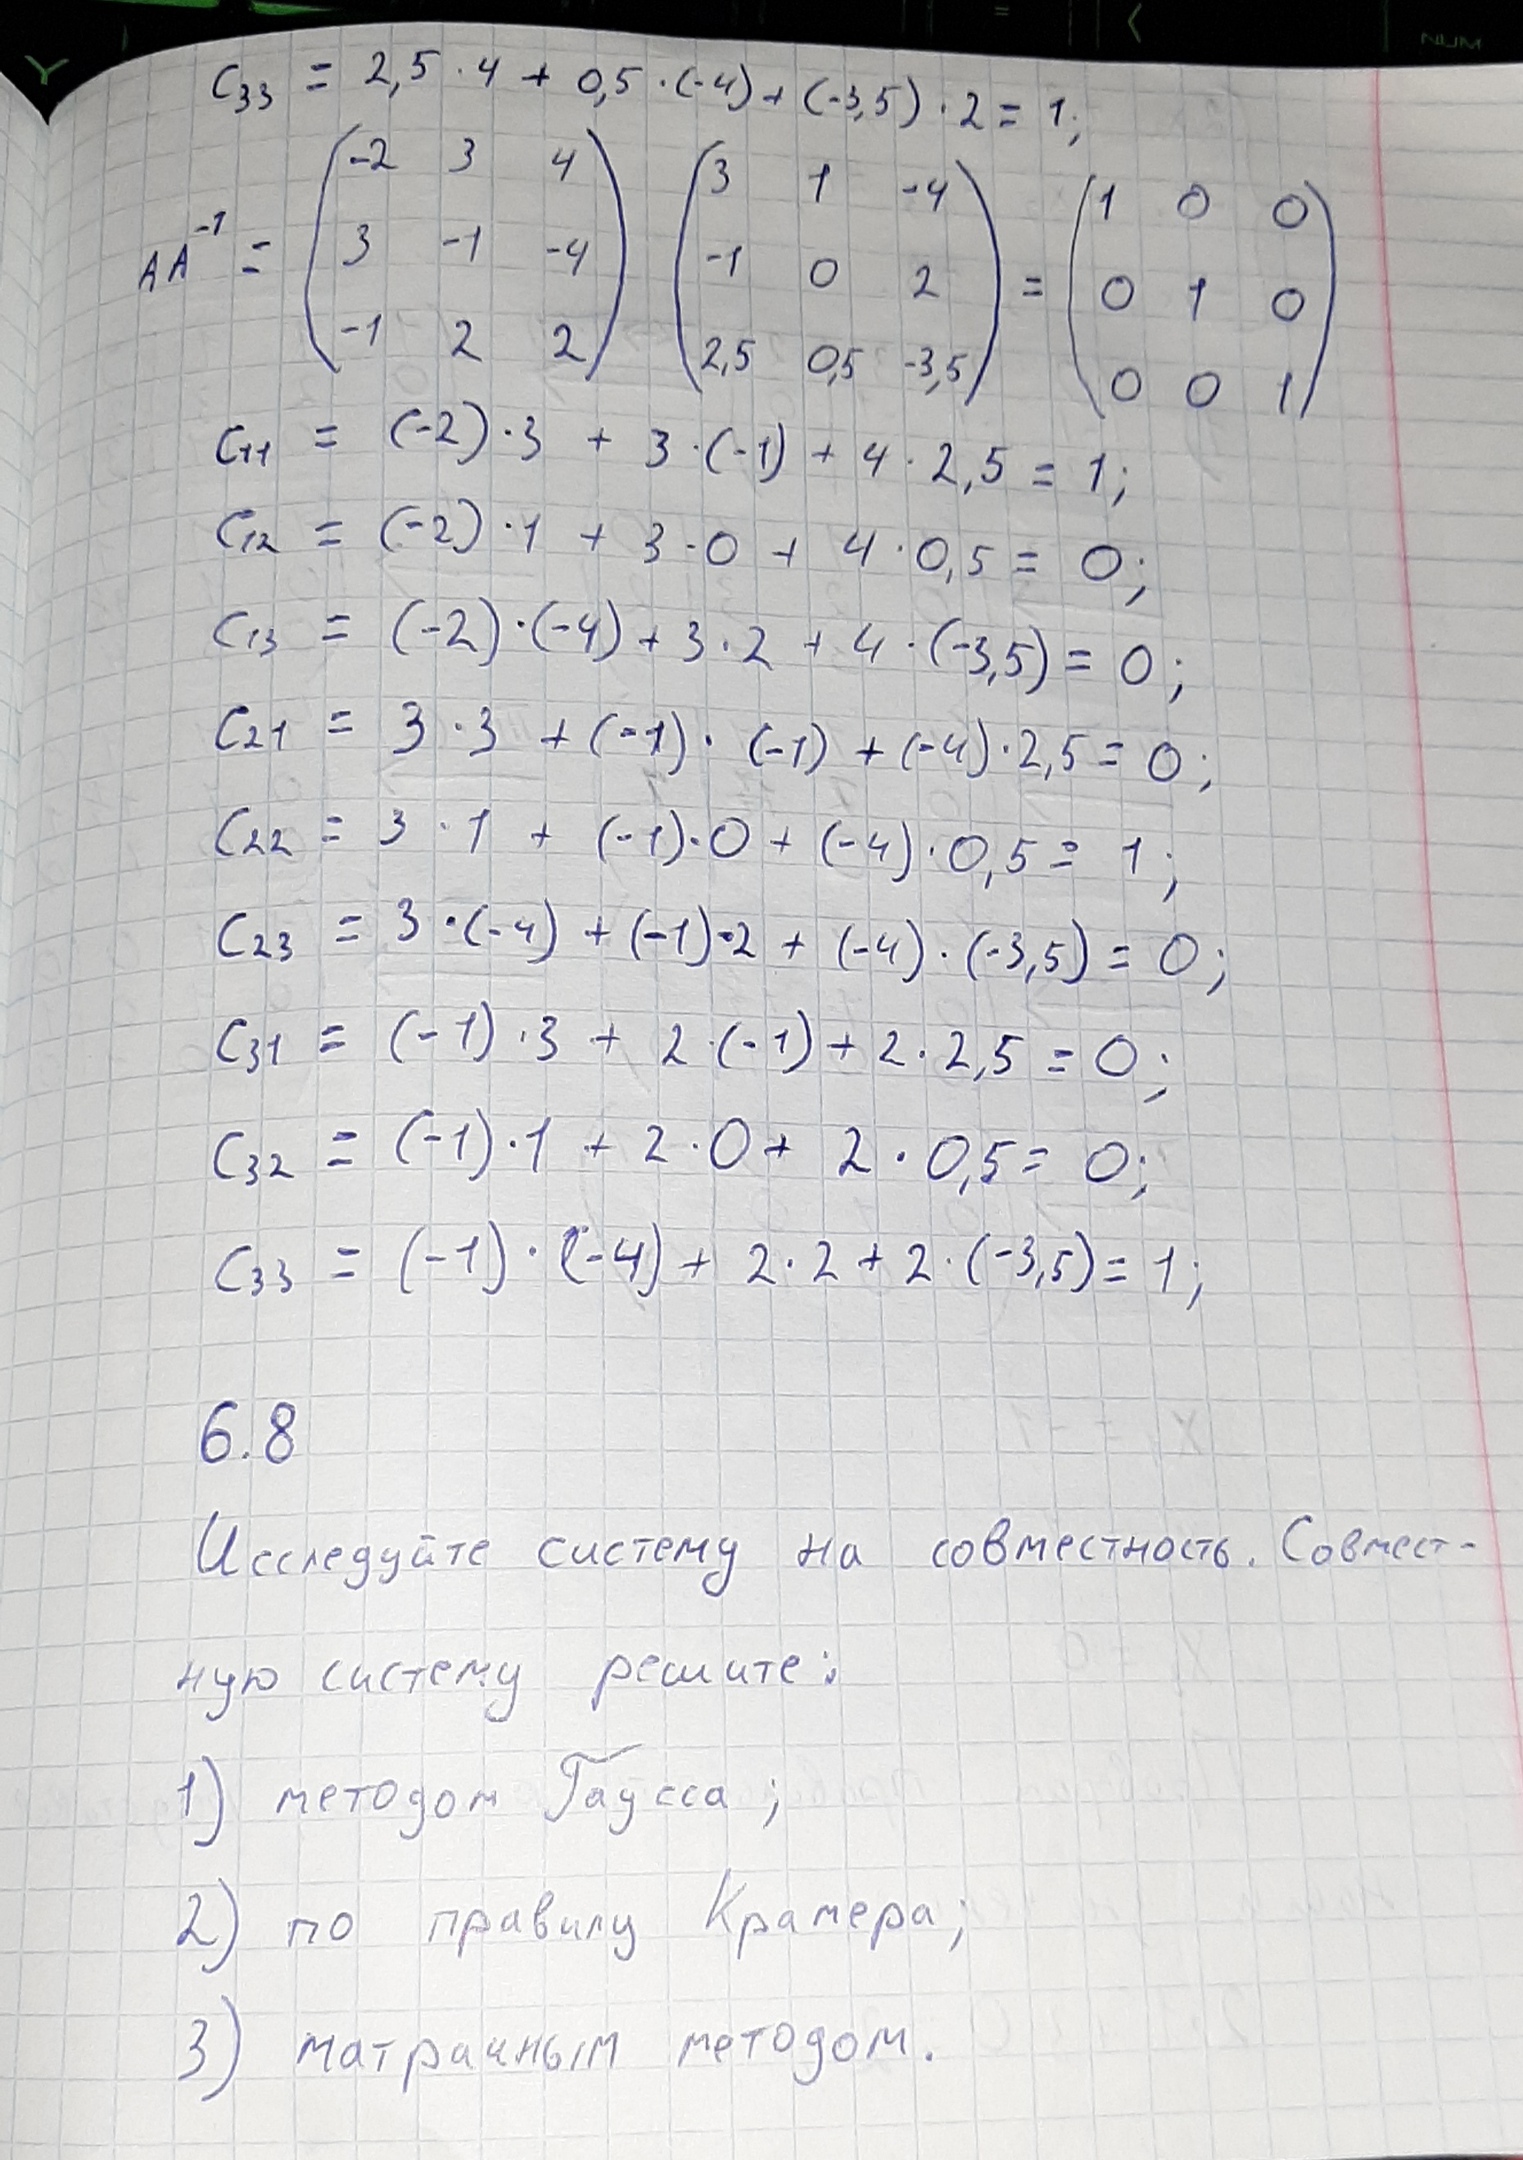 C₃₃ = 2,5 · 4 + 0,5 · (-4) + (-3,5) · 2 = 1;
AA⁻¹ = (-2 3 4
3 -1 -4
-1 2 2) (3 1 -4
-1 0 2
2,5 0,5 -3,5) = (1 0 0
0 1 0
0 0 1)
C₁₁ = (-2) · 3 + 3 · (-1) + 4 · 2,5 = 1;
C₁₂ = (-2) · 1 + 3 · 0 + 4 · 0,5 = 0;
C₁₃ = (-2) · (-4) + 3 · 2 + 4 · (-3,5) = 0;
C₂₁ = 3 · 3 + (-1) · (-1) + (-4) · 2,5 = 0;
C₂₂ = 3 · 1 + (-1) · 0 + (-4) · 0,5 = 1;
C₂₃ = 3 · (-4) + (-1) · 2 + (-4) · (-3,5) = 0;
C₃₁ = (-1) · 3 + 2 · (-1) + 2 · 2,5 = 0;
C₃₂ = (-1) · 1 + 2 · 0 + 2 · 0,5 = 0;
C₃₃ = (-1) · (-4) + 2 · 2 + 2 · (-3,5) = 1;
6.8
Исследуйте систему на совместность. Совмест-
ную систему решите:
1) методом Гаусса;
2) по правилу Крамера;
3) матрачным методом.